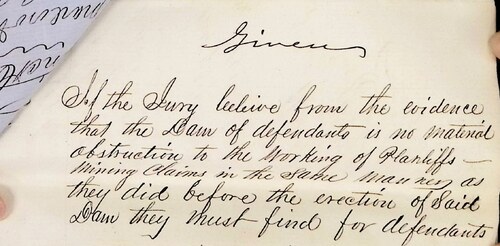 Given
If the Jury beleive from the evidence
that the Dam of defendants is no material
obstruction to the Working of Plantiffs —
Mining Claims in the Same manner as
they did before the erection of Said
Dam they must find for defendants